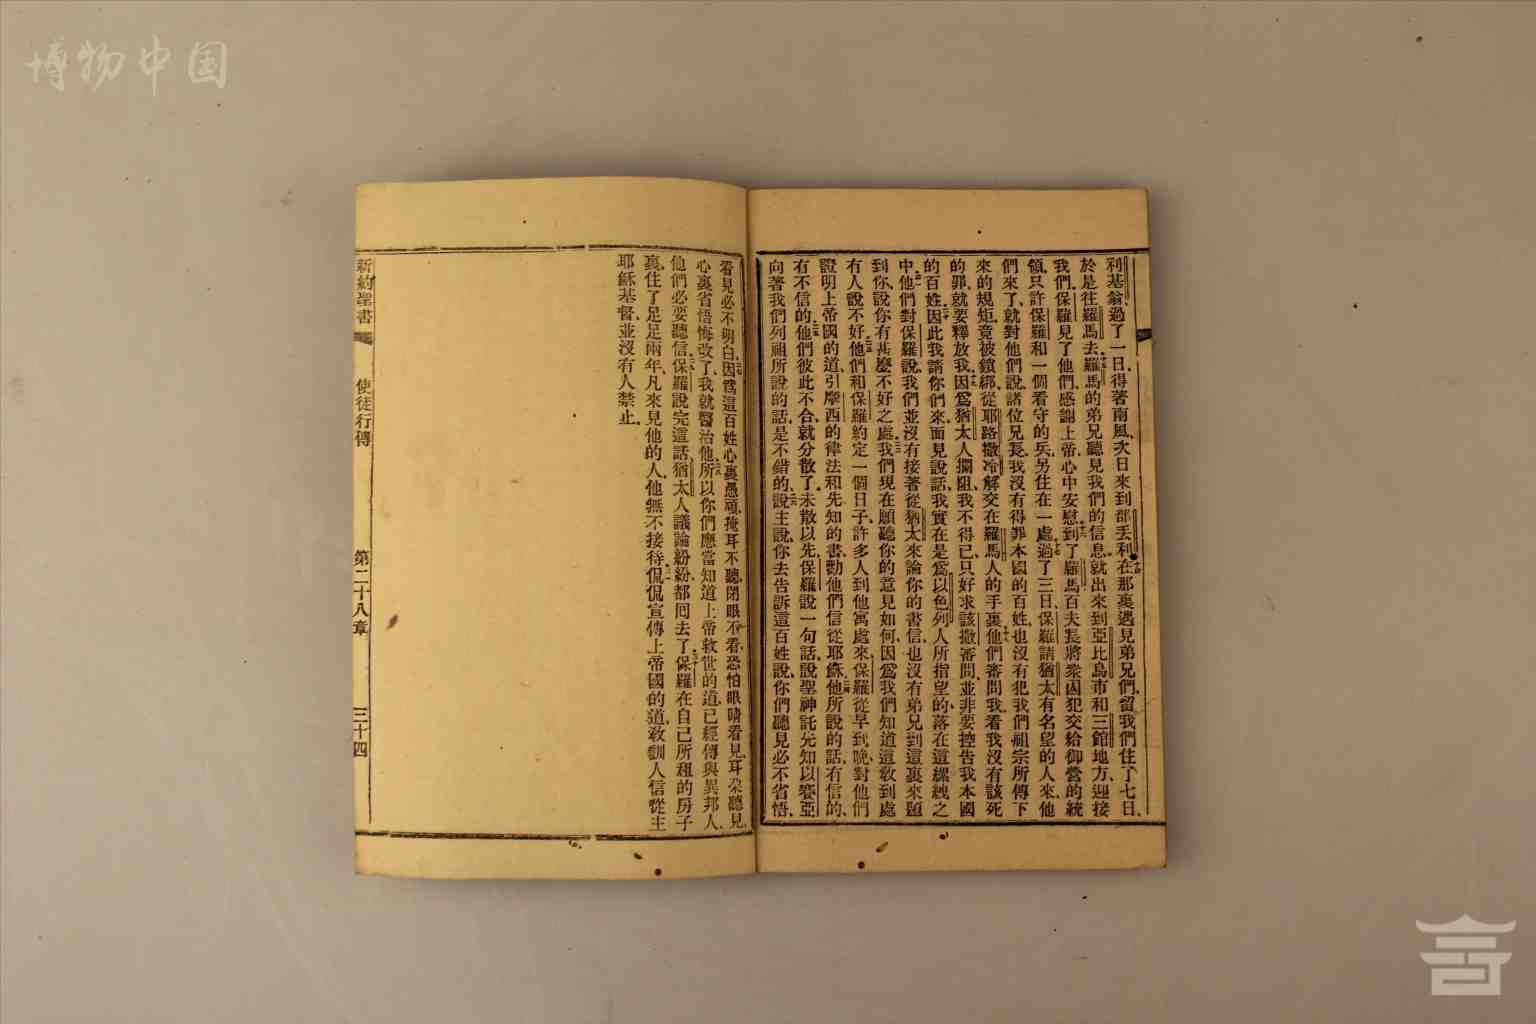 博物中国
利基翁過了一日、得著南風、次日來到部丟利、在那裏遇見弟兄們、留我們住了七日、
於是往羅馬去、羅馬的弟兄聽見我們的信息、就出來到亞比烏市和三館地方、迎接
我們、保羅見了他們、感謝上帝、心中安慰、到了羅馬、百夫長將衆囚犯交給御營的統
領、只許保羅和一個看守的兵、另住在一處、過了三日、保羅請猶太有名望的人來、他
們來了、就對他們說、諸位兄長、我沒有得罪本國的百姓、也沒有犯我們祖宗所傳下
來的規矩、竟被鎖綁、從耶路撒冷解交在羅馬人的手裏、他們審問我、看我沒有該死
的罪、就要釋放我、因爲猶太人攔阻、我不得已、只好求該撒審問、並非要控告我本國
的百姓、因此我請你們來、面見說話、我實在是爲以色列人所指望的、落在這縲絏之
中、他們對保羅說、我們並沒有接著從猶太來論你的書信、也沒有弟兄到這裏來題
到你、說你有甚麼不好之處、我們現在願聽你的意見如何、因爲我們知道這敎到處
有人說不好、他們和保羅約定一個日子、許多人到他寓處來、保羅從早到晚、對他們
證明上帝國的道、引摩西的律法和先知的書、勸他們信從耶穌、他所說的話、有信的、
有不信的、他們彼此不合、就分散了、未散以先、保羅說一句話、說聖神託先知以賽亞
向著我們列祖所說的話、是不錯的、說主說、你去告訴這百姓說、你們聽見必不省悟、
看見必不明白、因爲這百姓心裏愚頑、掩耳不聽、閉眼不看、恐怕眼睛看見、耳朶聽見、
心裏省悟悔改了、我就醫治他、所以你們應當知道上帝救世的道、已經傳與異邦人、
他們必要聽信、保羅說完這話、猶太人議論紛紛、都囘去了、保羅在自己所租的房子
裏、住了足足兩年、凡來見他的人、他無不接待、侃侃宣傳上帝國的道、敎訓人信從主
耶穌基督、並沒有人禁止、
新約聖書 使徒行傳 第二十八章 三十四